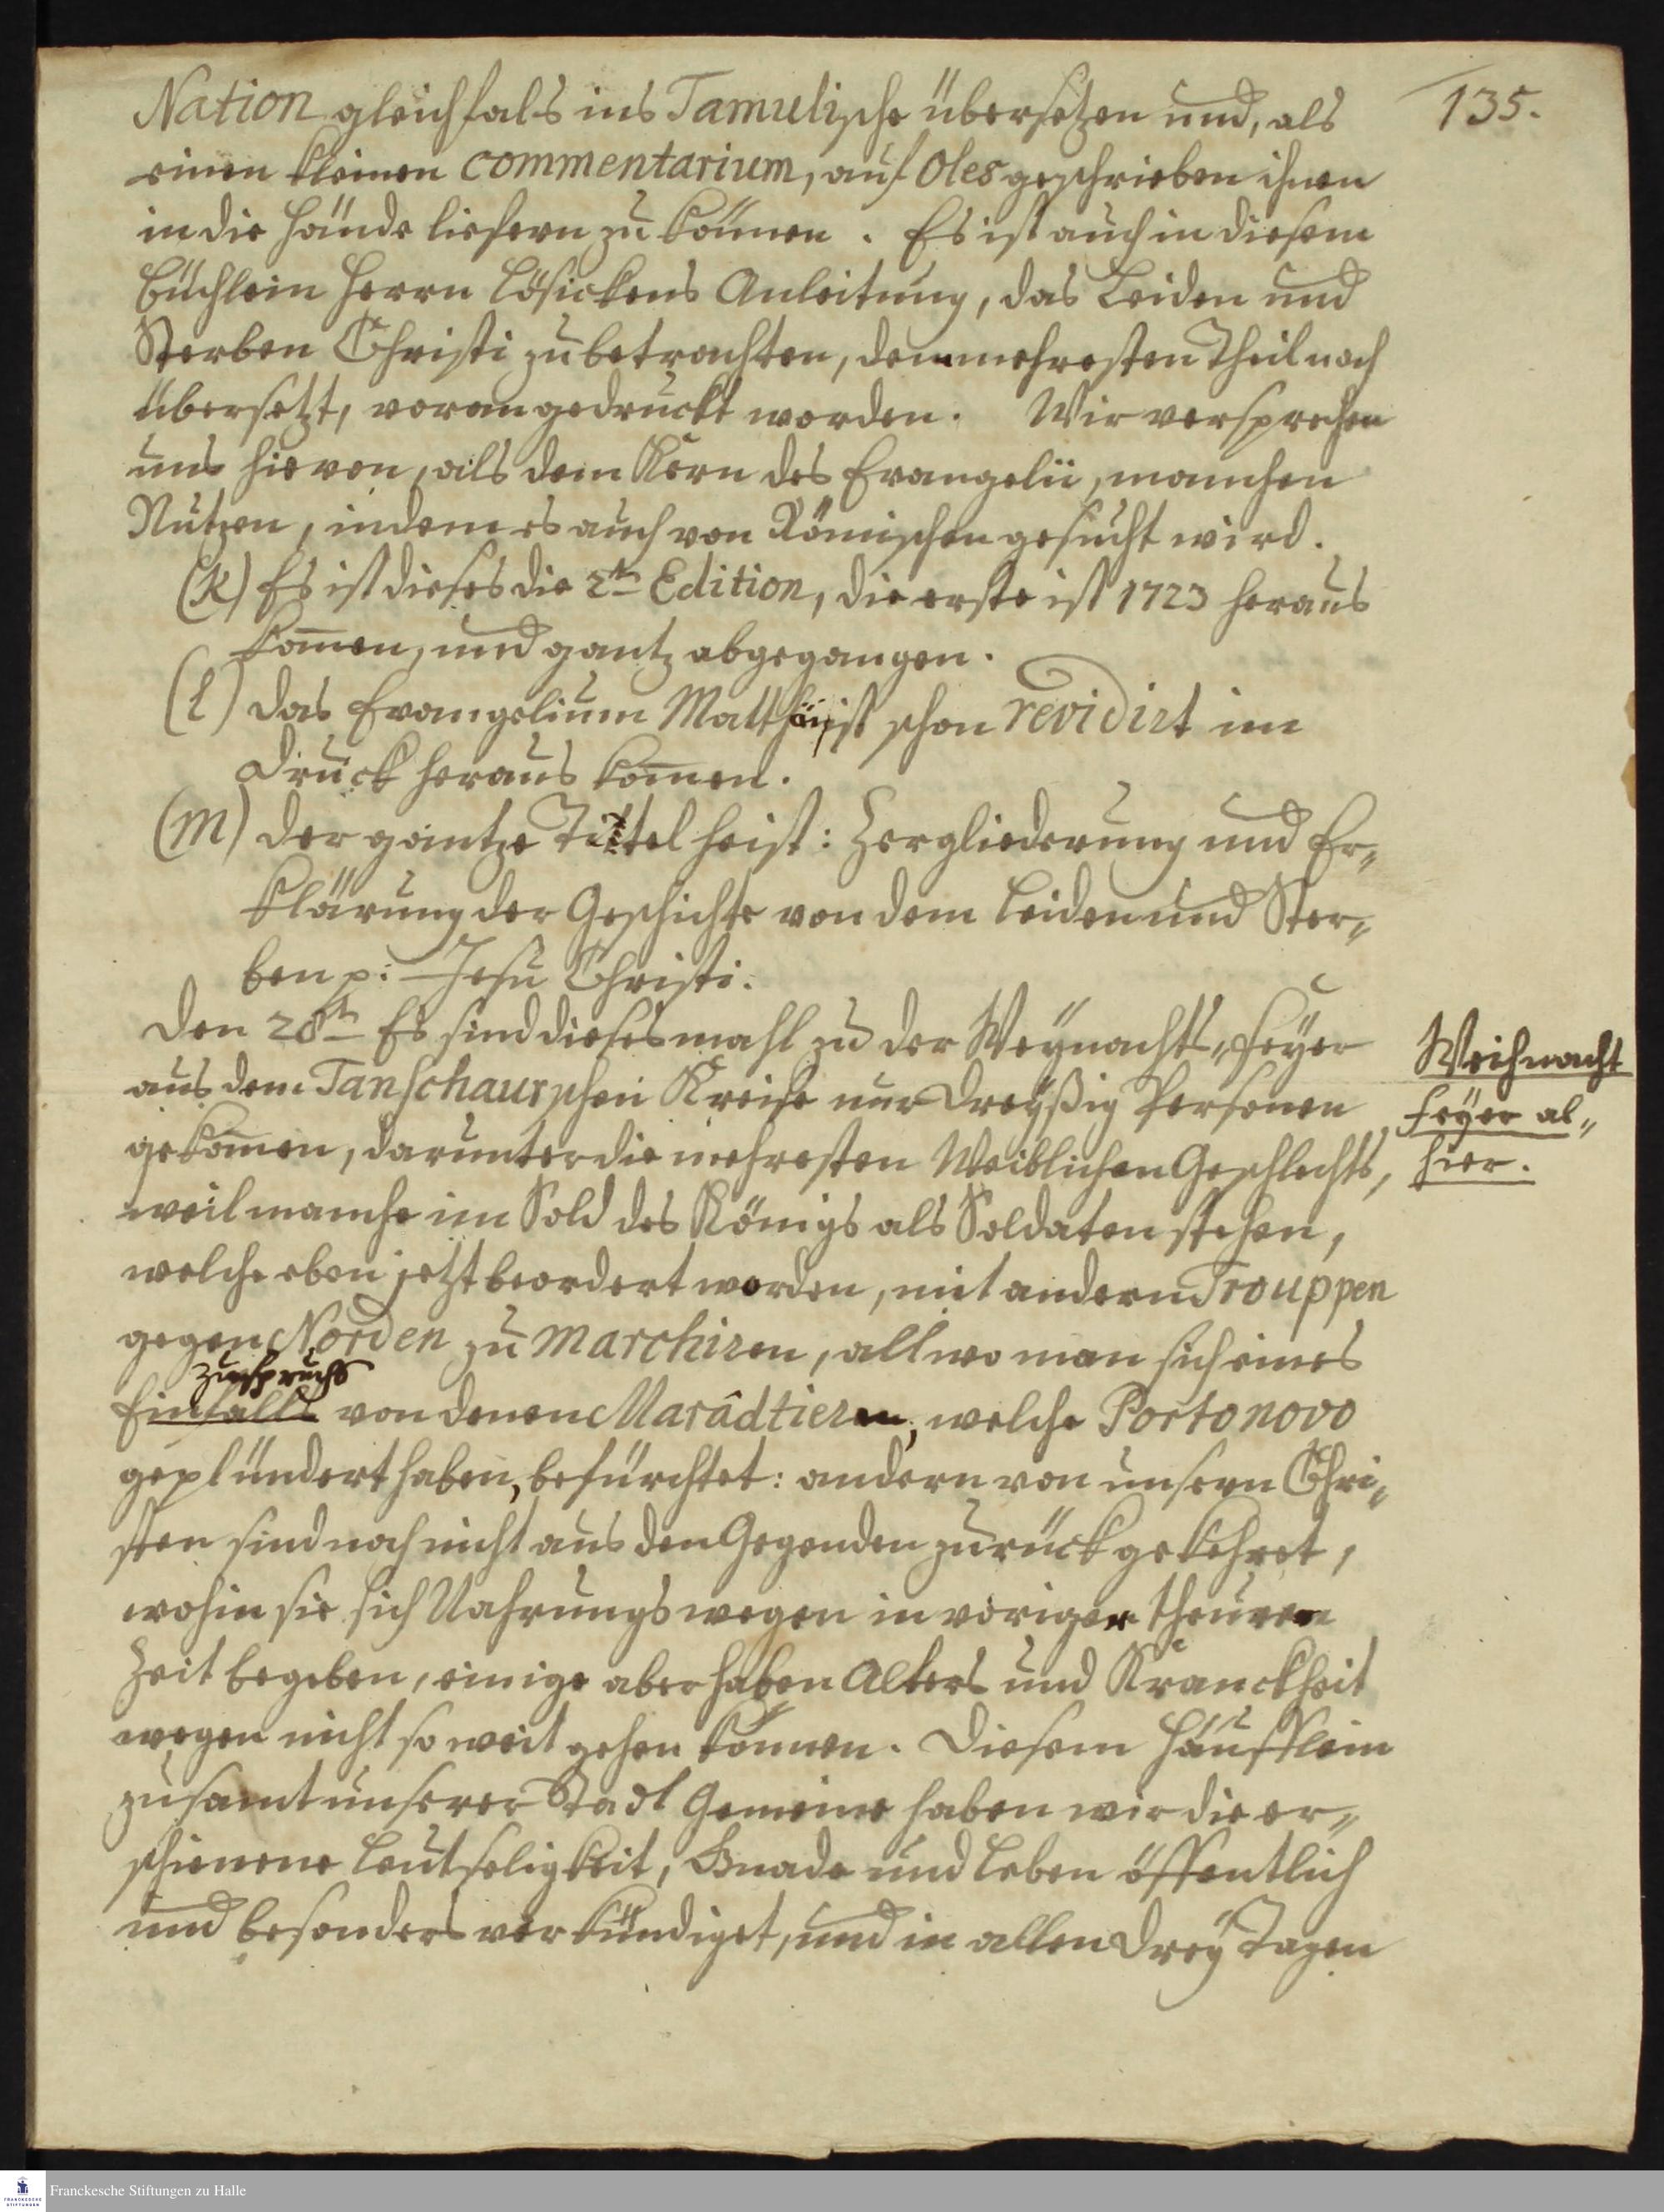 135.
Nation gleichfals ins Tamulische übersetzen und, als
einen kleinen commentarium, auf Oles geschrieben ihnen
in die Hände liefern zu können. Es ist auch in diesem
Büchlein Herrn Lösickens Anleitung, das Leiden und
Sterben Christi zu betrachten, dem mehresten Theil nach
übersetzt, voran gedruckt worden. Wir versprechen
uns hievon, als dem Kern des Evangelii, manchen
Nutzen, indem es auch von Römischen gesucht wird.
(k) Es ist dieses die 2te Edition, die erste ist 1723 heraus
kom̅en, und gantz abgegangen.
(l) das Evangelium Matthäi ist schon revidirt im
Druck heraus kom̅en.
(m) der gantze Tittel heist: Zergliederung und Er„
klärung der Geschichte von dem Leiden und Ster„
ben p: Jesu Christi.
Den 28ten Es sind dieses mahl zu der Weynachts„Feyer
aus dem Tanschaurschen Kreise nur Dreyßig Personen
gekom̅en, darunter die mehresten Weiblichen Geschlechts,
weil manche im Sold des Königs als Soldaten stehen,
welche eben jetzt beordert worden, mit andern Trouppen
gegen Norden zu marchiren, allwo man sich eines
Zuspruchs
Einfalls von denen Marâdtiern, welche Portonovo
geplündert haben, befürchtet: andern von unsern Chri„
sten sind noch nicht aus den Gegenden zurück gekehret,
wohin sie sich Nahrungs wegen in voriger theuren
Zeit begeben, einige aber haben Alters und Kranckheit
wegen nicht so weit gehen können. Diesem Häufflein
zusamt unserer Stadt Gemeine haben wir die er„
schienene Leutseligkeit, Gnade und Leben öffentlich
und besonders verkündiget, und in allen Drey Tagen
Weihnacht
Feyer al„
hier.
Franckesche Stiftungen zu Halle